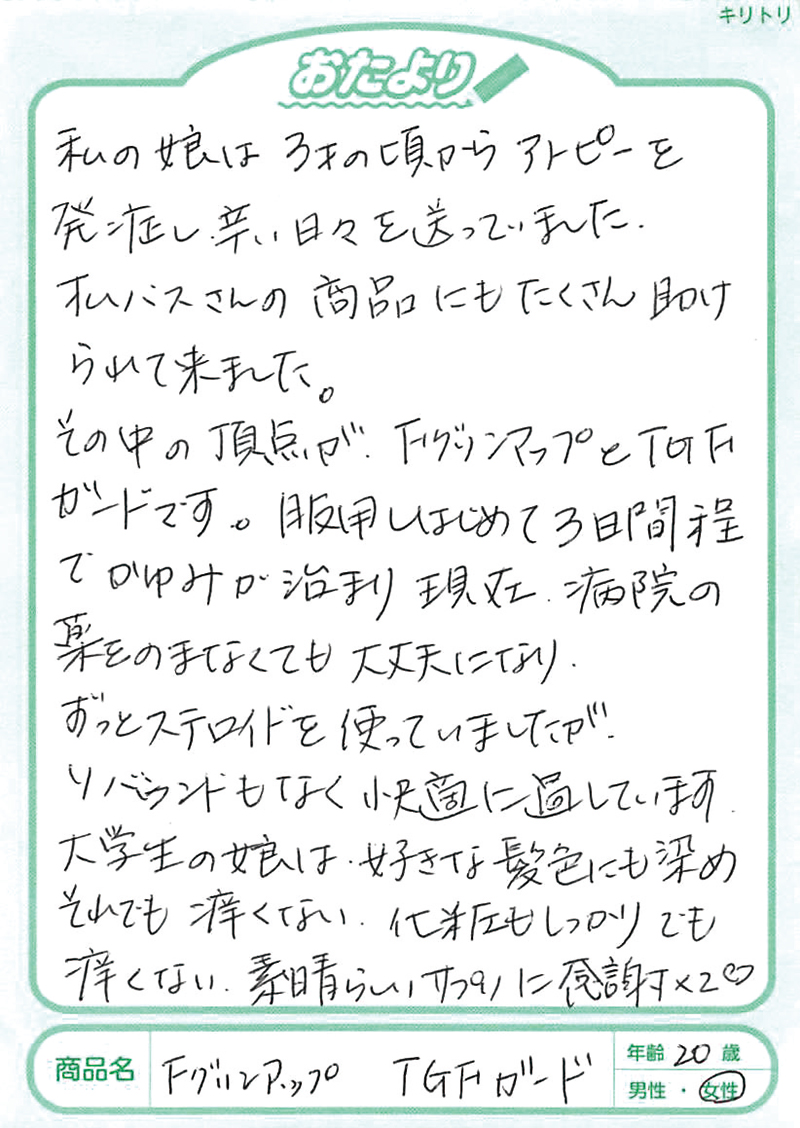 キリトリ
おたより
私の娘は3才の頃からアトピーを
発症し、辛い日々を送っていました。
オムバスさんの商品にもたくさん助け
られて来ました。
その中の頂点が、FグリンアップとTGF
ガードです。服用しはじめて3日間程
でかゆみが治まり現在、病院の
薬をのまなくても大丈夫になり、
ずっとステロイドを使っていましたが、
リバウンドもなく快適に過しています。
大学生の娘は、好きな髪色にも染め
それでも痒くない、化粧もしっかりでも
痒くない、素晴らしいサプリに感謝す×2♡
商品名 Fグリンアップ TGFガード
年齢 20 歳
男性・女性